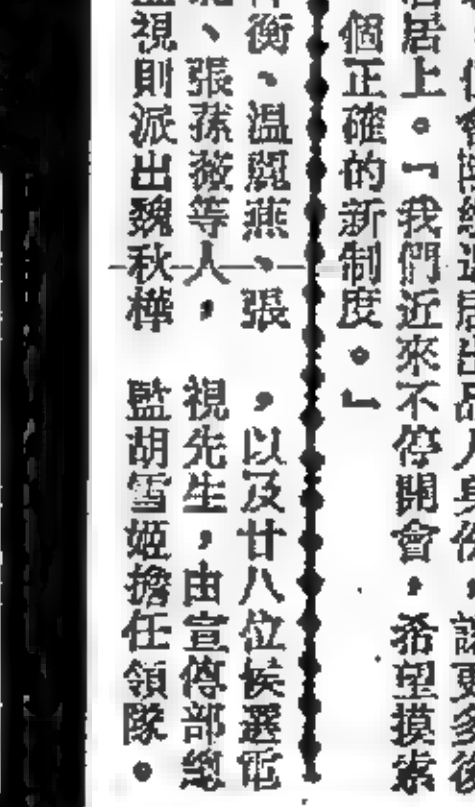 品人身份，
居上。「我們近來不停開會，希望摸索
個正確的新制度。」
衡、溫麗燕、張
、張蓀薇等人，
視則派出魏秋樺
，以及廿八位候選電
視先生，由宣傳部總
監胡雪姬擔任領隊。